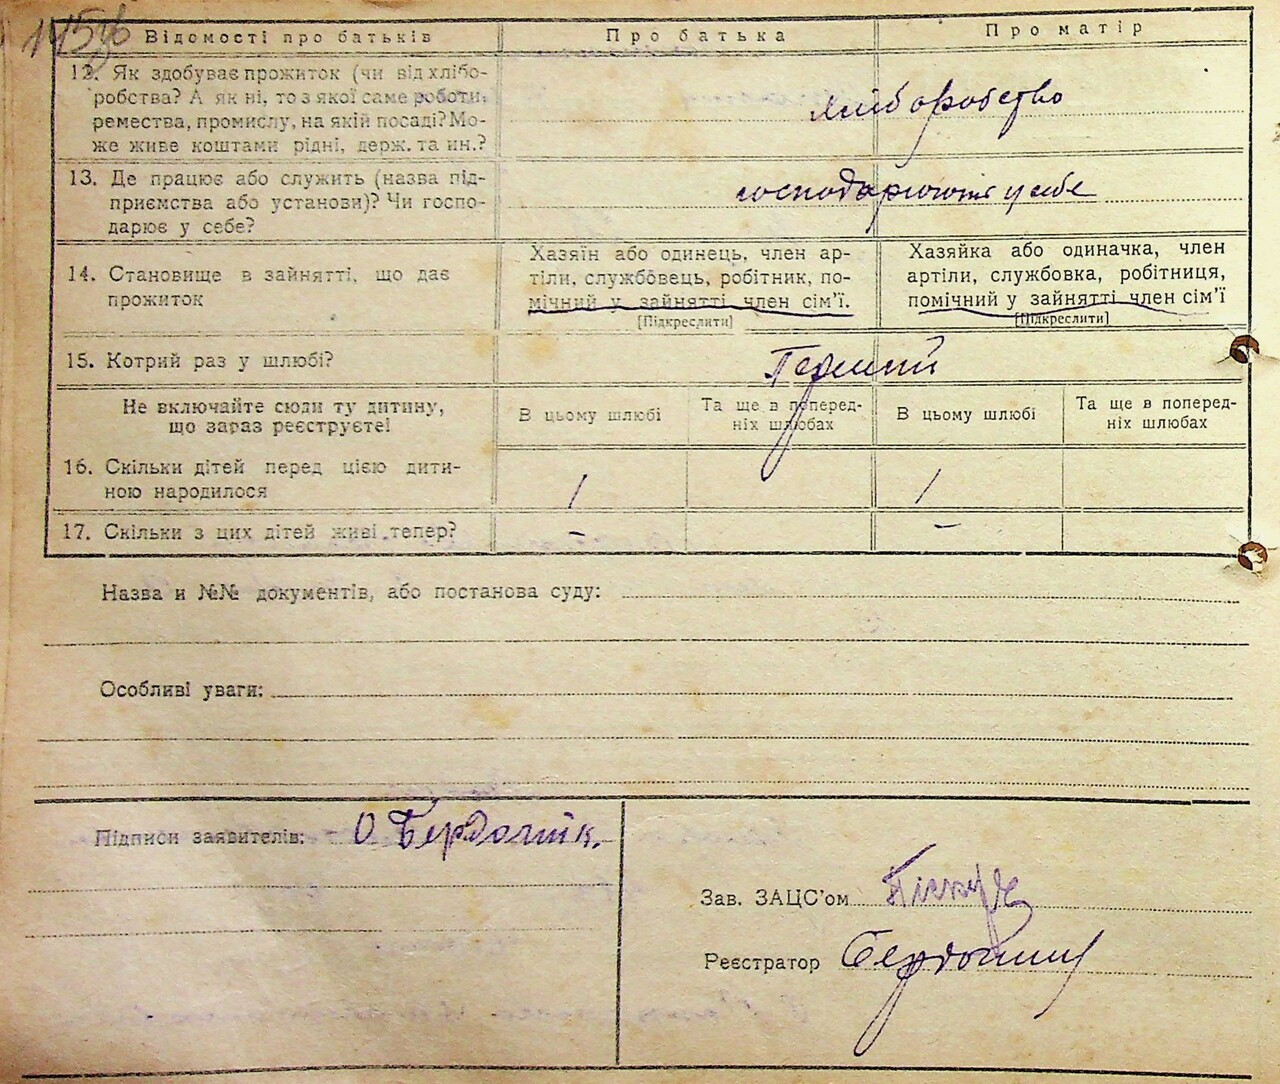 Відомості про батьків
Про батька
Про матір
12. Як здобуває прожиток (чи від хлібо-
робства? А як ні, то з якої саме роботи,
ремества, промислу, на якій посаді? Мо-
же живе коштами рідні, держ. та ин.?
хліборобство
13. Де працює або служить (назва під-
приємства або установи)? Чи госпо-
дарює у себе?
у себе
14. Становище в зайнятті, що дає
прожиток
Хазяїн або одинець, член ар-
тіли, службовець, робітник, по-
мічний у зайнятті член сім'ї.
[Підкреслити]
Хазяйка або одиначка, член
артіли, службовка, робітниця,
помічний у зайнятті член сім'ї
[Підкреслити]
15. Котрий раз у шлюбі?
Перший
Не включайте сюди ту дитину,
що зараз реєструєте!
В цьому шлюбі
Та ще в поперед-
ніх шлюбах
В цьому шлюбі
Та ще в поперед-
ніх шлюбах
16. Скільки дітей перед цією дити-
ною народилося
1
1
17. Скільки з цих дітей живі тепер?
–
–
Назва и №№ документів, або постанова суду:
Особливі уваги:
Підписи заявителів: О Бердочник.
Зав. ЗАЦС'ом
Реєстратор